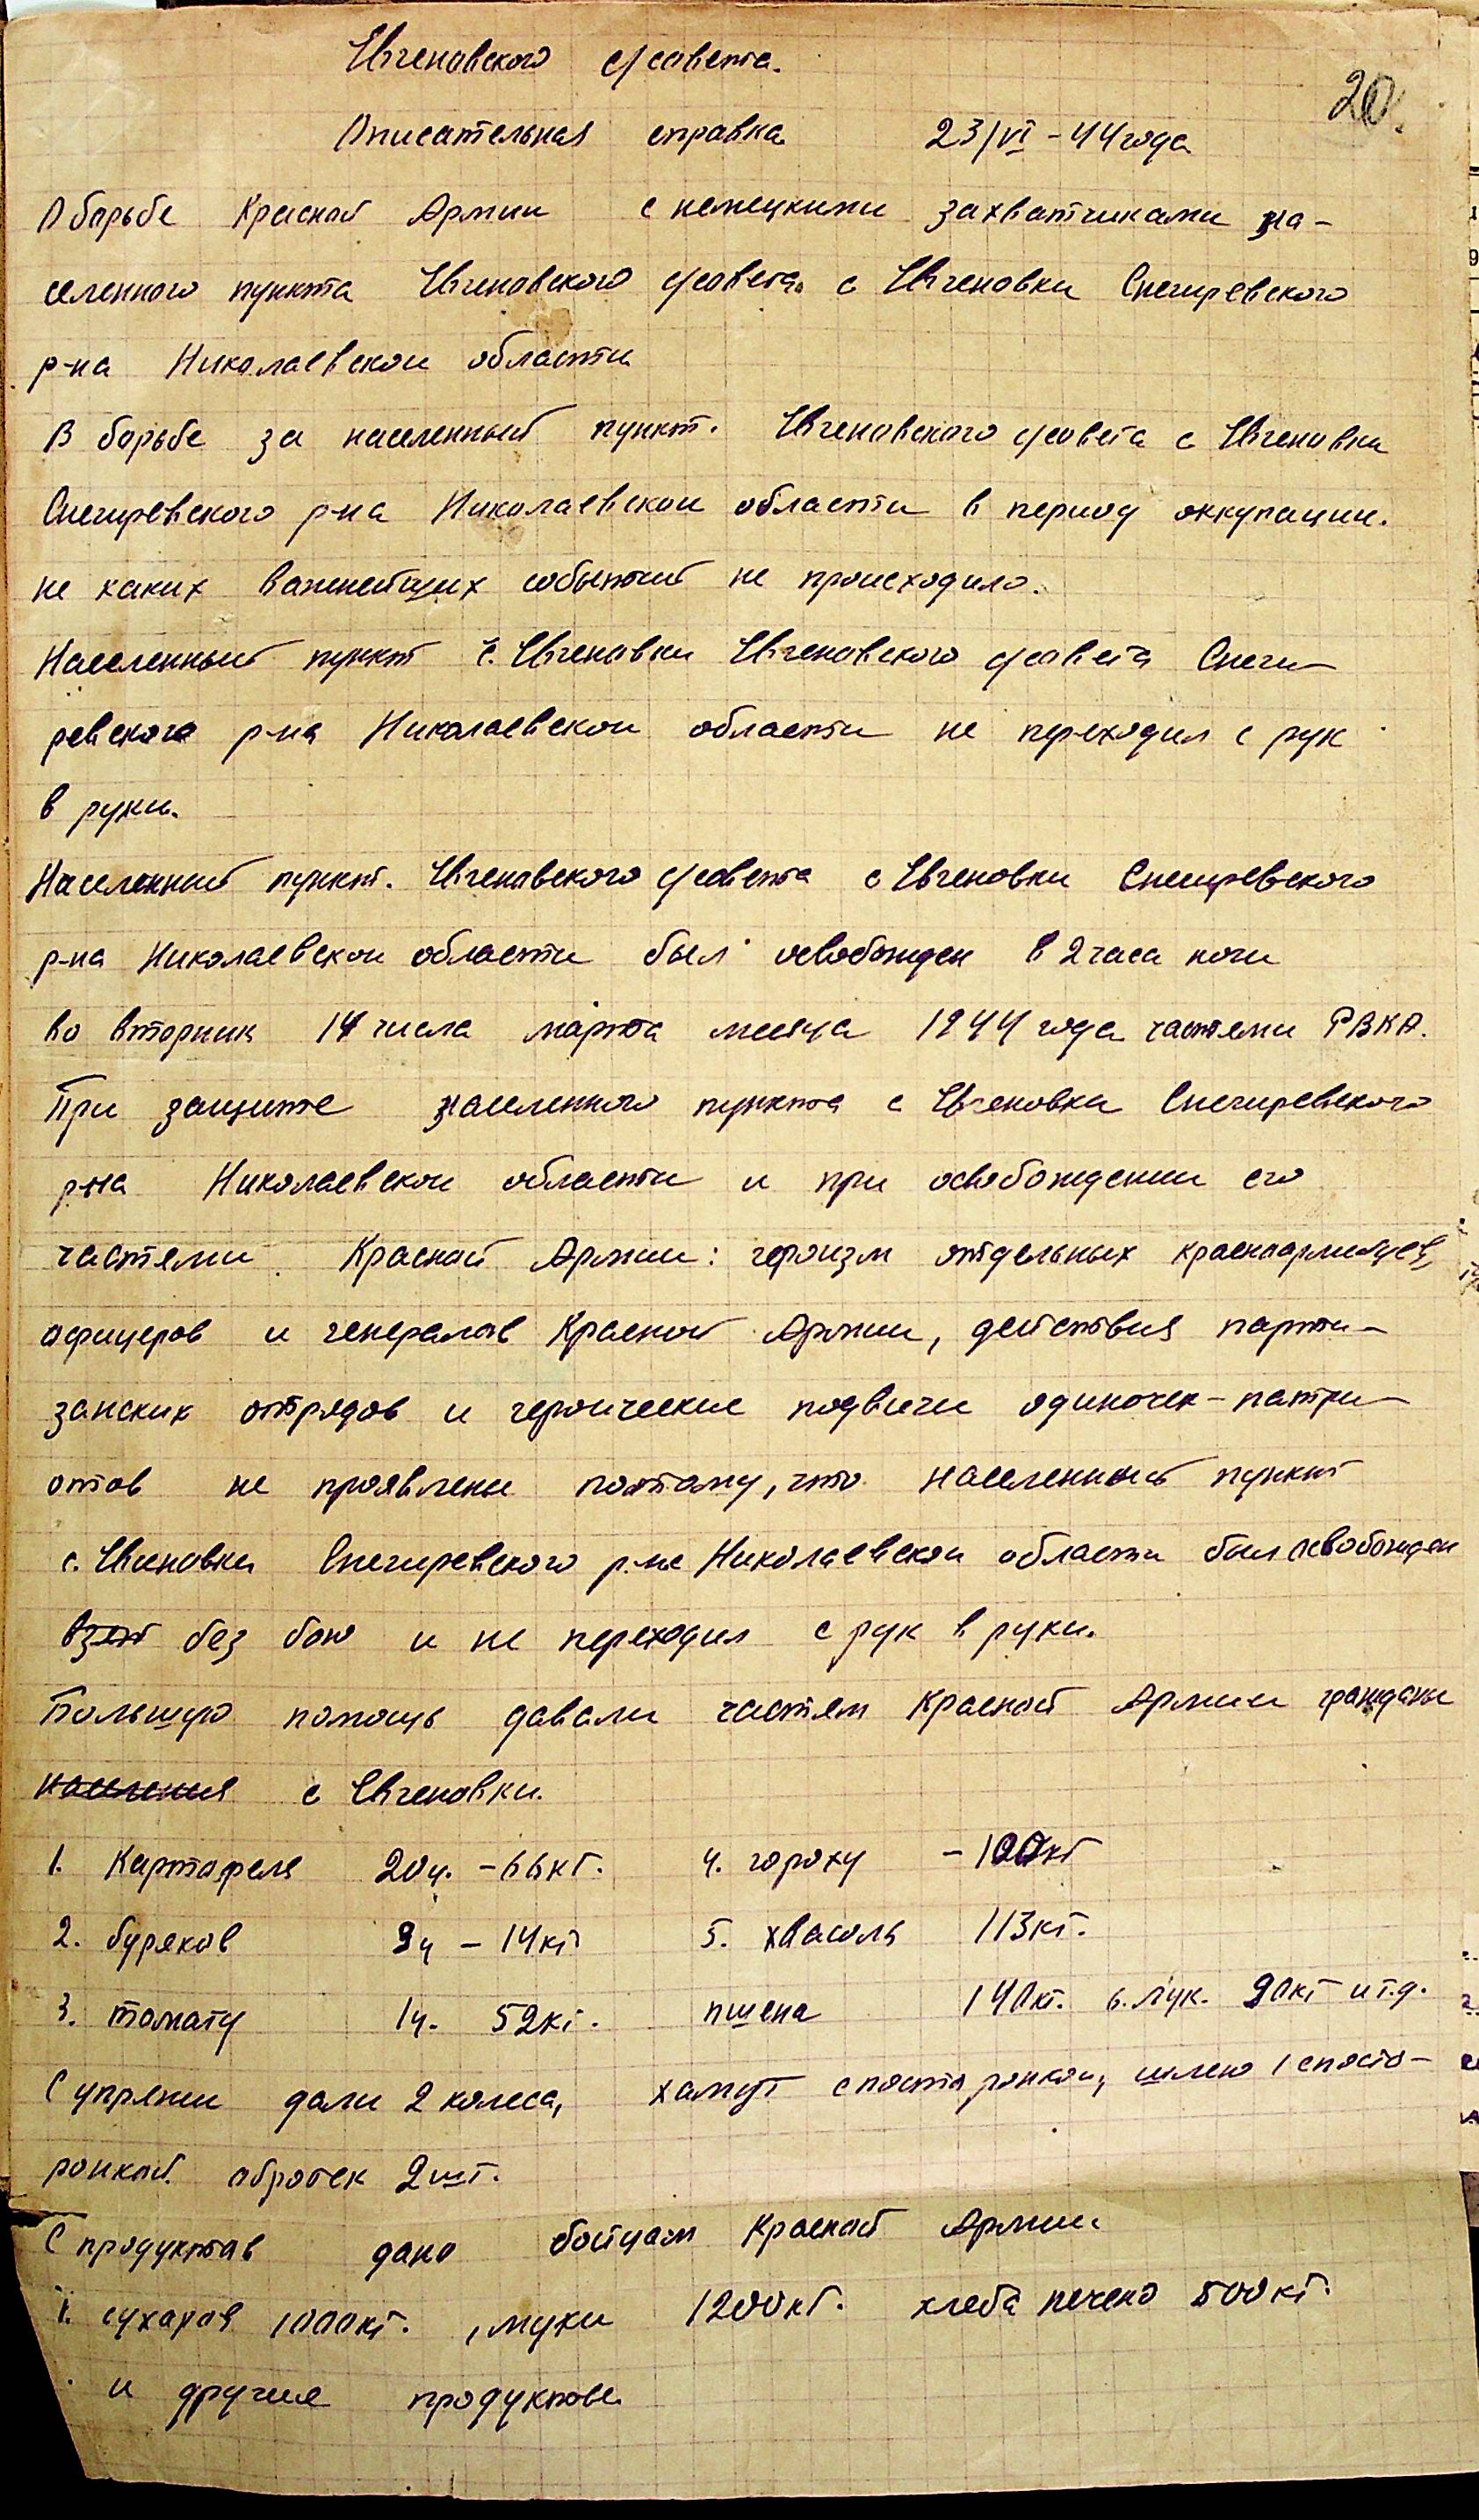 Евгеновского с/совета.
20.
Описательная справка 23/VI – 44 года
О борьбе Красной Армии с немецкими захватчиками на-
селенного пункта Евгеновского с/совета с Евгеновки Снегиревского
р-на Николаевскои области
В борьбе за населенный пункт. Евгеновского с/совета с Евгеновка
Снегиревского р-на Николаевскои области в период оккупации.
не каких важнейших событий не происходило.
Населенный пункт с. Евгеновки Евгеновского с/совета Снеги-
ревского р-на Николаевскои области не переходил с рук
в руки.
Населенный пункт. Евгеновского с/совета с Евгеновки Снегиревского
р-на Николаевскои области был освобожден в 2 часа ночи
во вторник 14 числа марта месяца 1944 года частями РККА.
При защите населенного пункта с Евгеновка Снегиревского
р-на Николаевскои области и при освобождении его
частями Красной Армии: героизм отдельных красноармейцев,
офицеров и генералов Красной Армии, действия парти-
занских отрядов и героические подвиги одиночек-патри-
отов не проявлены поэтому, что населенный пункт
с. Евгеновки Снегиревского р-на Николаевскои области был освобожден
взят без бою и не переходил с рук в руки.
Большую помощь давали частям Красной Армии граждане
населения с Евгеновки.
1. Картофеля 20ц. – 66кг. 4. гороху – 100кг
2. буряков 3ц – 14кг 5. хвасоль 113кг.
3. томату 1ц. 52кг. пшена 140кг. 6. лук. 90кг и т.д.
С упряжи дали 2 колеса, хамут с посторонкои, шлею с посто-
ронкой. обротек 2 шт.
С продуктов дано бойцам Красной Армии
1. сухаров 1000кг. , муки 1200кг. хлеба печено 500кг.
и другие продуктов.